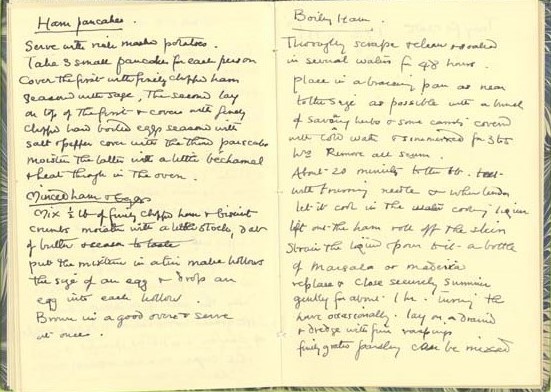 Ham pancakes.
Serve with nice mashed potatoes.
Take 3 small pancakes for each person
Cover the first with finely chopped ham
Season with sage, The second lay
on top of the first & cover with finely
chopped hard boiled eggs season with
salt & pepper cover with the third pancake
moisten the latter with a little béchamel
& heat through in the oven.
Minced ham & Eggs
Mix ½ lb of finely chopped ham & biscuit
crumbs moisten with a little stock, dab
of butter
put the mixture in a tin make hollows
the size of an egg & drop an
egg into each hollow.
Brown in a good oven & serve
at once.
Boiling Ham.
Thoroughly scrape & clean & soaked
in several waters for 48 hours.
place in a braising pan as near
to the size as possible with a bunch
of savoury herbs & some cover
with cold water & simmered for 3 to
Remove all scum.
About 20 minutes to the lb. test
with needle or when tender
let it cool in the water cooking liquor
lift out the ham roll off the skin
Strain the liquid & pour to it a bottle
of Marsala or madeira
replace & close securely simmer
gently for about 1 hr. turning the
ham occasionally. lay on a
& dredge with fine raspings
finely grated parsley can be mixed